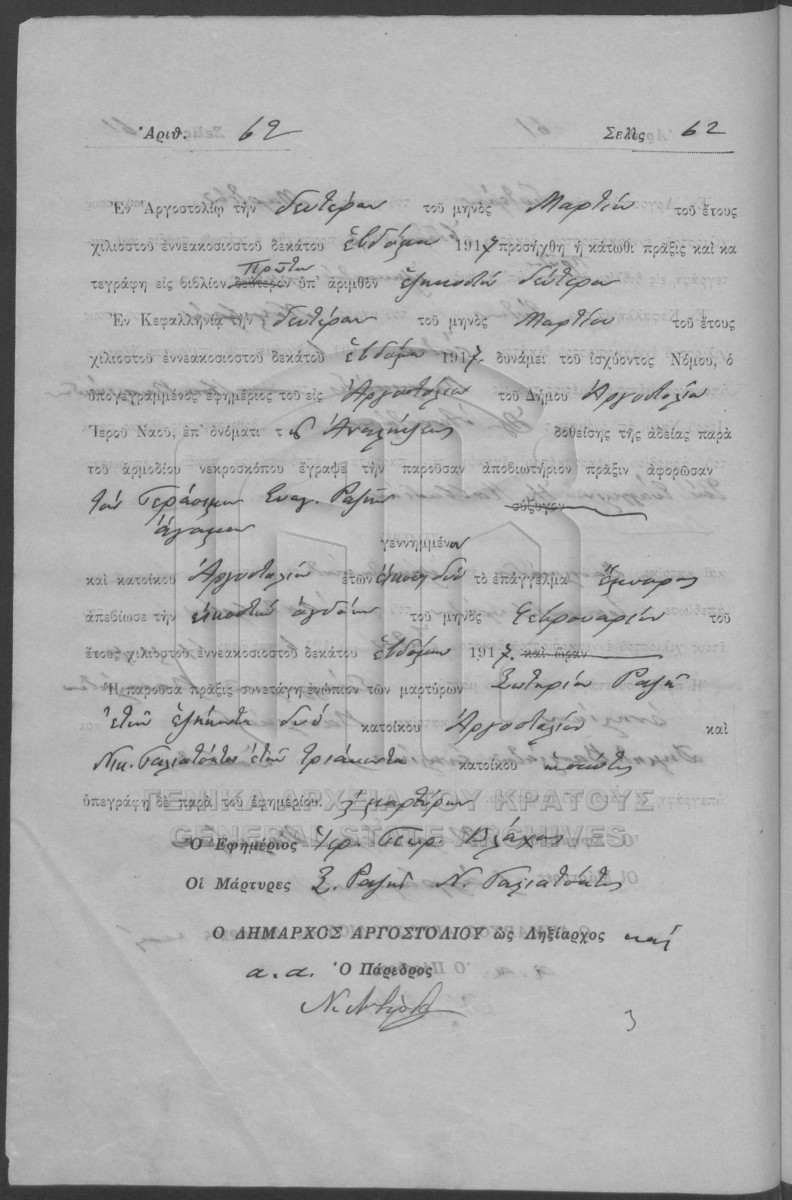 Ἀριθ. 62 Σελὶς 62
Ἐν Ἀργοστολίῳ τὴν δευτέραν τοῦ μηνὸς Μαρτίου τοῦ ἔτους
χιλιοστοῦ ἐννεακοσιοστοῦ δεκάτου ἑβδόμου 1917 προσήχθη ἡ κάτωθι πρᾶξις καὶ κα
Πρῶτον
τεγράφη εἰς βιβλίον δεύτερον ὑπ' ἀριθμὸν ἑξηκοστὸν δεύτερον
Ἐν Κεφαλληνίᾳ τὴν δευτέραν τοῦ μηνὸς Μαρτίου τοῦ ἔτους
χιλιοστοῦ ἐννεακοσιοστοῦ δεκάτου ἑβδόμου 1917. δυνάμει τοῦ ἰσχύοντος Νόμου, ὁ
ὑπογεγραμμένος ἐφημέριος τοῦ εἰς Ἀργοστόλιον τοῦ Δήμου Ἀργοστολίου
Ἱεροῦ Ναοῦ, ἐπ' ὀνόματι τῆς Ἀναλήψεως δοθείσης τῆς ἀδείας παρὰ
τοῦ ἁρμοδίου νεκροσκόπου ἔγραψε τὴν παροῦσαν ἀποβιωτήριον πρᾶξιν ἀφορῶσαν
τὸν Γεράσιμον Εὐαγ. σύζυγον
ἄγαμον
γεννημμένον
καὶ κατοίκου Ἀργοστολίου ἐτῶν εἴκοσι δύο τὸ ἐπάγγελμα
ἀπεβίωσε τὴν εἰκοστὴν ὀγδόην τοῦ μηνὸς Φεβρουαρίου τοῦ
ἔτους χιλιοστοῦ ἐννεακοσιοστοῦ δεκάτου ἑβδόμου 1917. καὶ ὥραν
Ἡ παροῦσα πρᾶξις συνετάγη ἐνώπιον τῶν μαρτύρων Σωτηρίου
ἐτῶν ἑξήκοντα δύο κατοίκου Ἀργοστολίου καὶ
Νικ. Γαλιατσάτος ἐτῶν τριάκοντα κατοίκου
ὑπεγράφη δὲ παρὰ τοῦ ἐφημερίου. μαρτύρων
ΓΕΝΙΚΑ ΑΡΧΕΙΑ ΤΟΥ ΚΡΑΤΟΥΣ
GENERAL STATE ARCHIVES
Ὁ Ἐφημέριος Ἱερ. Γεωρ Βλάχος
Οἱ Μάρτυρες Σ. Ν. Γαλιατσάτος
Ο ΔΗΜΑΡΧΟΣ ΑΡΓΟΣΤΟΛΙΟΥ ὡς Ληξίαρχος καὶ
α.α. Ὁ Πάρεδρος